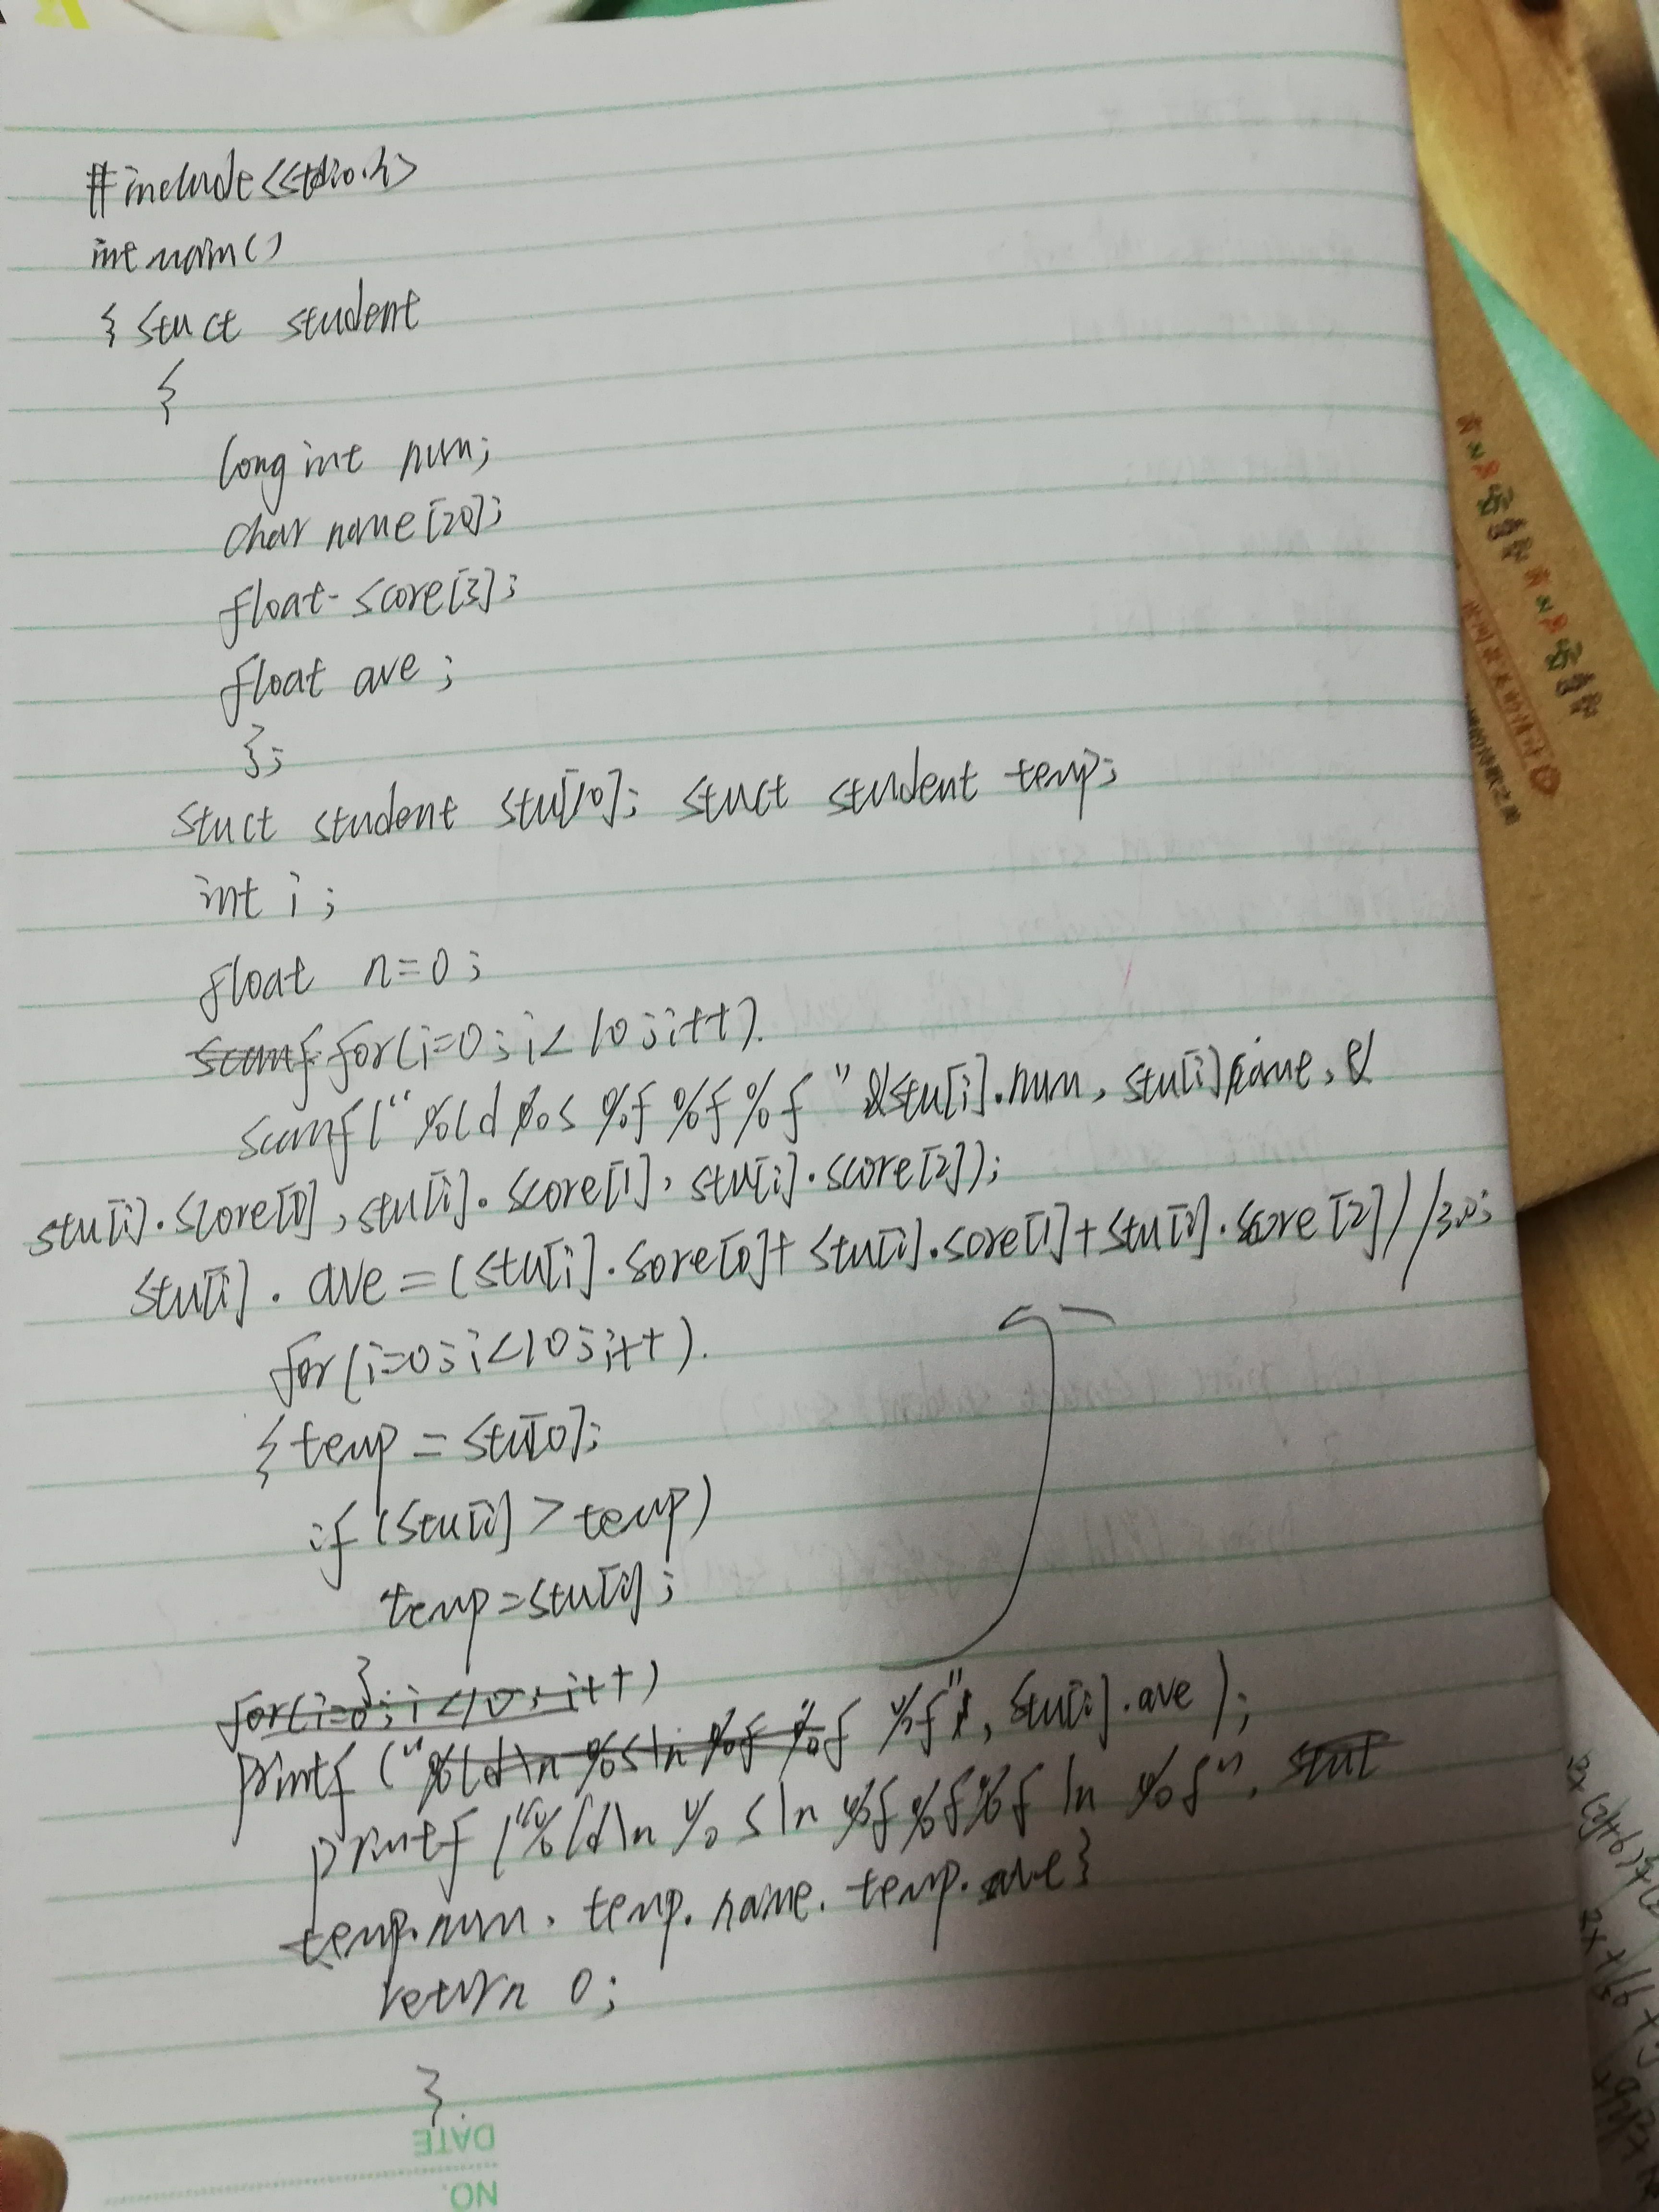 #include<stdio.h>
int main()
{ stuct student
{
long int num;
char name[20];
float score[3];
float ave;
};
stuct student stu[10]; stuct student temp;
int i;
float n=0;
scanf for(i=0;i<10;i++).
scanf("%ld %s %f %f %f" &stu[i].num, stu[i]name, &
stu[i].score[0], stu[i].score[1], stu[i].score[2]);
stu[i].ave=(stu[i].sore[0]+stu[i].sore[1]+stu[i].score[2])/3.0;
for(i=0;i<10;i++).
{ temp = stu[0];
if (stu[i] > temp)
temp=stu[i];
}
for(i=0;i<10;i++)
printf ("%ld\n %s\n %f %f %f", stu[i].ave);
printf ("%ld\n %s\n %f%f%f\n %f", stut
temp.num, temp.name, temp.ave}
return 0;
}
DATE
NO.